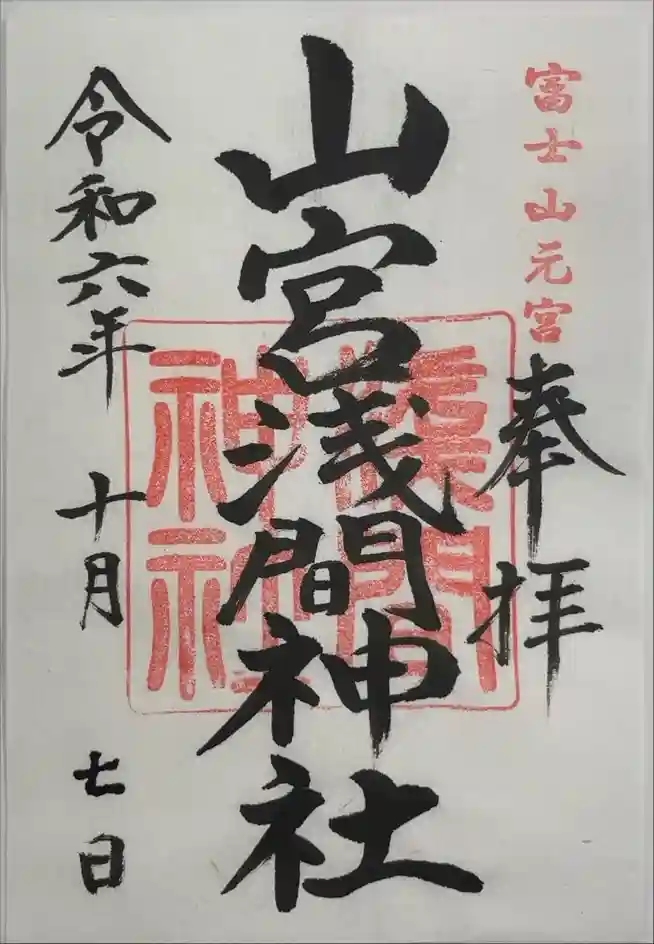 富士山元宮
奉拝
山宮浅間神社
淺間神社
令和六年 十月 七日